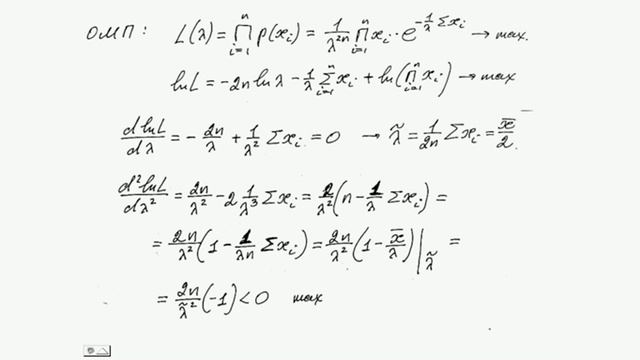 ОМП: L(λ) = ∏_{i=1}^{n} p(x_i) = 1/λ^{2n} ∏_{i=1}^{n} x_i · e^{-1/λ Σx_i} → max.
ln L = -2n ln λ - 1/λ Σ_{i=1}^{n} x_i + ln(∏_{i=1}^{n} x_i) → max
d ln L/dλ = - 2n/λ + 1/λ² Σx_i = 0 → λ̃ = 1/2n Σx_i = x̄/2.
d² ln L/dλ² = 2n/λ² - 2 1/λ³ Σx_i = 2/λ² (n - 1/λ Σx_i) =
= 2n/λ² (1 - 1/λn Σx_i) = 2n/λ² (1 - x̄/λ)|_{λ̃} =
= 2n/λ̃² (-1) < 0 max